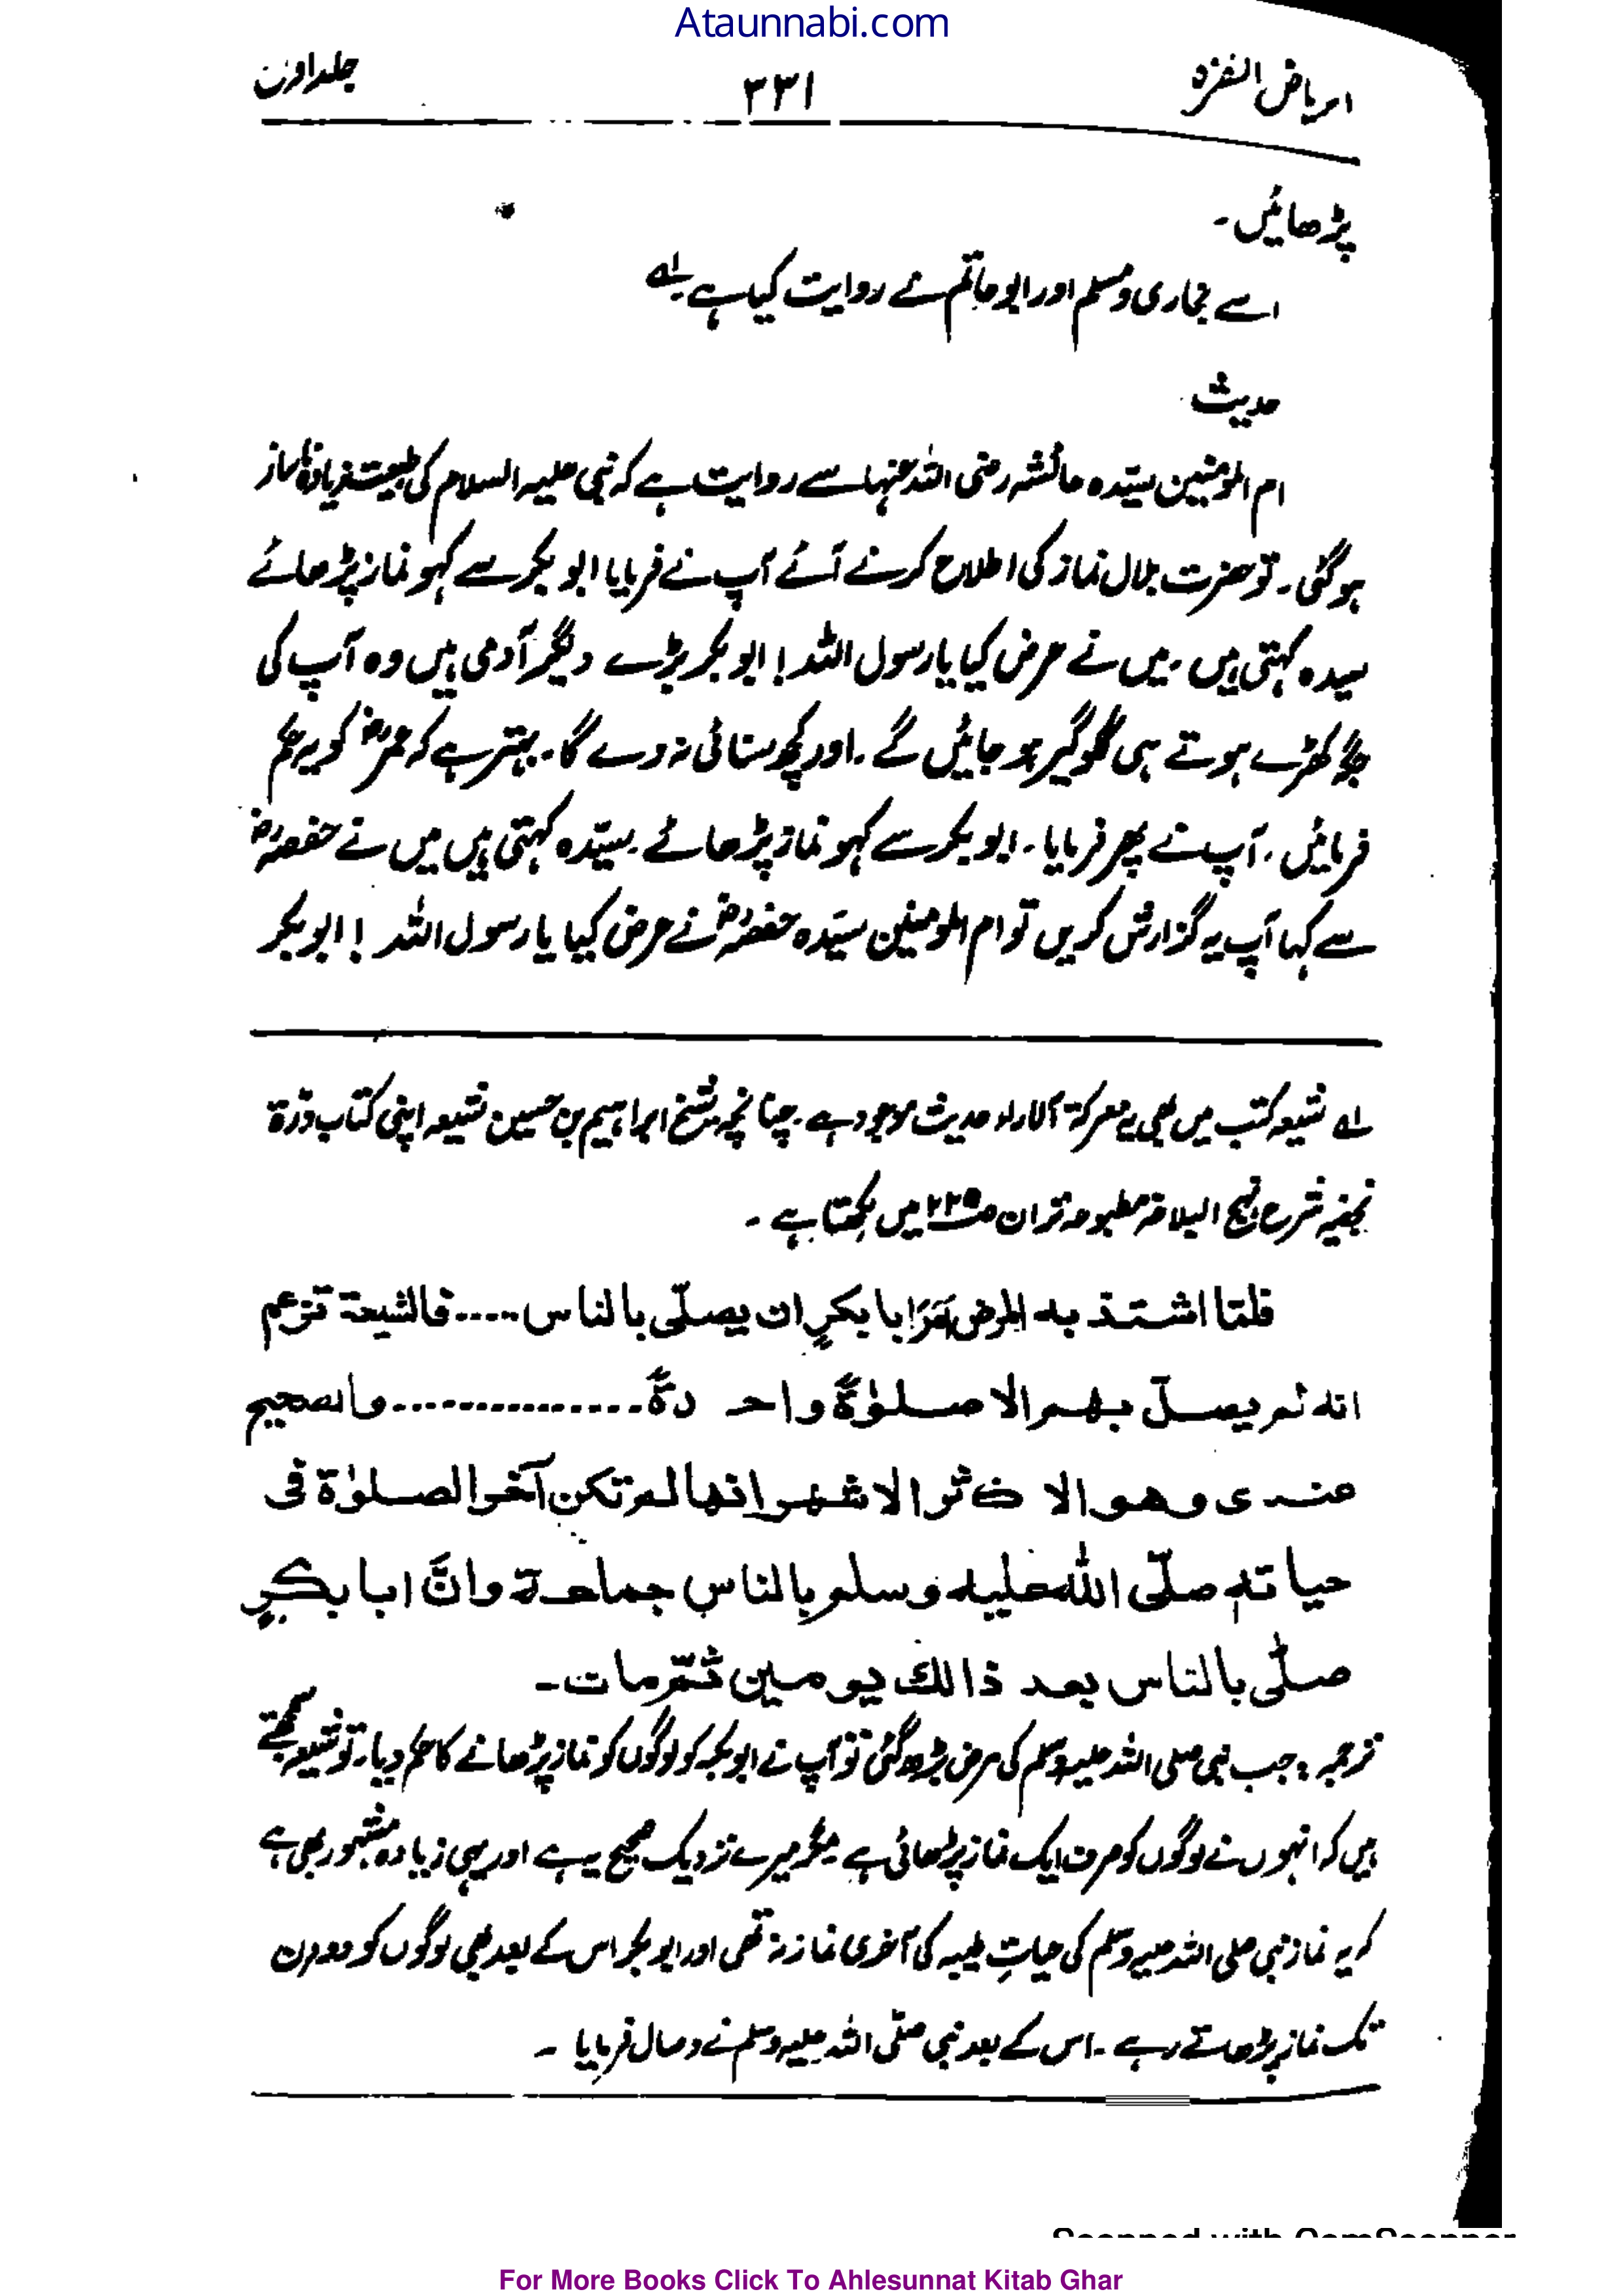 Ataunnabi.com
الریاض النضرہ ۳۳۱ جلد اول
پڑھائیں۔
اسے بخاری ومسلم اور ابو حاتم نے روایت کیا ہے لہ
حدیث
ام المومنین سیّدہ عائشہ رضی اللہ عنہا سے روایت ہے کہ نبی علیہ السلام کی طبیعت زیادہ ناساز
ہو گئی۔ تو حضرت بلال نماز کی اطلاع کرنے آئے آپ نے فرمایا ابو بکر سے کہو نماز پڑھائے
سیدہ کہتی ہیں۔ میں نے عرض کیا یا رسول اللہ! ابو بکر بڑے دلگیر آدمی ہیں وہ آپ کی
جگہ کھڑے ہوتے ہی گلوگیر ہو جائیں گے۔ اور کچھ سنائی نہ دے گا۔ بہتر ہے کہ عمرؓ کو یہ حکم
فرمائیں۔ آپ نے پھر فرمایا۔ ابو بکر سے کہو نماز پڑھائے۔ سیّدہ کہتی ہیں میں نے حفصہؓ
سے کہا آپ یہ گزارش کریں تو ام المومنین سیّدہ حفصہؓ نے عرض کیا یا رسول اللہ! ابو بکر
لہ شیعہ کتب میں بھی یہ معرکۃ الآراء حدیث موجود ہے۔ چنانچہ شیخ ابراہیم بن حسین شیعہ اپنی کتاب درۃ
نجفیہ شرح نہج البلاغۃ مطبوعہ تہران ص۲۲۵ میں لکھتا ہے۔
فلمّا اشتدّ به المرض اَمَرَ ابا بکرٍ ان یصلّی بالناس ..... فالشیعۃ تزعم
انه لم یصلّ بهم الا صلوٰۃً واحدۃً ............... والصحیح
عندی وهو الاکثر الاشهر انها لم تکن آخر الصلوٰۃ فی
حیاته صلّی اللہ علیه وسلم بالناس جماعۃ وانّ ابا بکرٍ
صلّی بالناس بعد ذالك یومین ثمّ مات۔
ترجمہ: جب نبی صلی اللہ علیہ وسلم کی مرض بڑھ گئی تو آپ نے ابو بکر کو لوگوں کو نماز پڑھانے کا حکم دیا۔ تو شیعہ سمجھتے
ہیں کہ انہوں نے لوگوں کو صرف ایک نماز پڑھائی ہے مگر میرے نزدیک صحیح یہ ہے اور یہی زیادہ مشہور بھی ہے
کہ یہ نماز نبی صلی اللہ علیہ وسلم کی حیاتِ طیبہ کی آخری نماز نہ تھی اور ابو بکر اس کے بعد بھی لوگوں کو دو دن
تک نماز پڑھاتے رہے۔ اس کے بعد نبی صلّی اللہ علیہ وسلم نے وصال فرمایا۔
Scanned with CamScanner
For More Books Click To Ahlesunnat Kitab Ghar